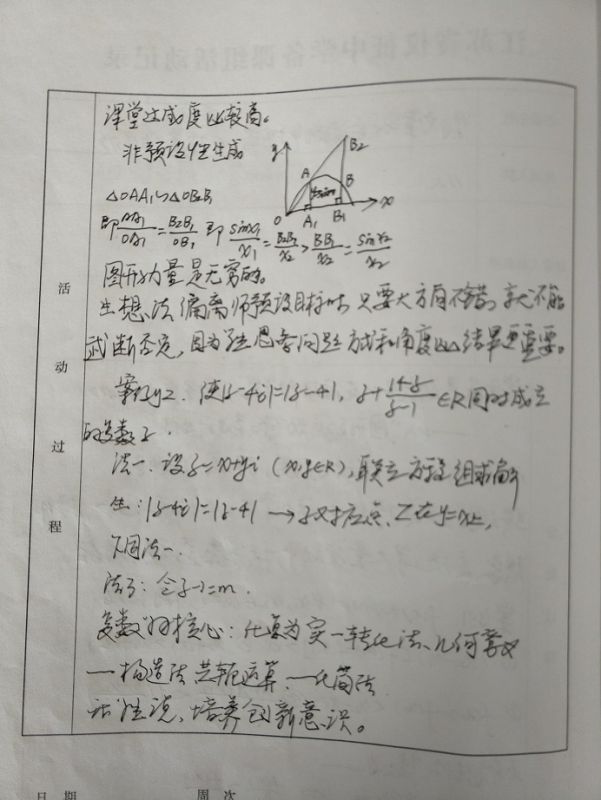 课堂达成度比较高。
非预设性生成
y B₂ A B y=sinx O A₁ B₁ x
△OAA₁∽△OB₂B₁
即 AA₁/OA₁ = B₂B₁/OB₁ 即 sinx₁/x₁ = B₂B₁/x₂ > BB₁/x₂ = sinx₂/x₂
图形力量是无穷的。
生想法偏离师预设目标时,只要大方向不错,就不能
武断否定,因为学生思考问题方式和角度比结果更重要。
案例2. 使|z-4i|=|z-4|, z+(14-z)/(z-1)∈R同时成立
的复数z.
法一. 设z=x+yi (x,y∈R),联立方程组求解
生: |z-4i|=|z-4| → z对应点Z在y=x上,
下同法一.
法3: 令z-1=m.
复数的核心: 化虚为实—转化法、几何意义
—构造法 共轭运算.—化简法
让生说、培养创新意识。
活
动
过
程
日 期 周 次